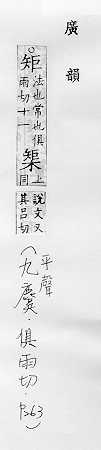 廣韻
○矩法也常也俱雨切十一榘上同說文又其呂切
(平聲
九麌.俱雨切.P263)